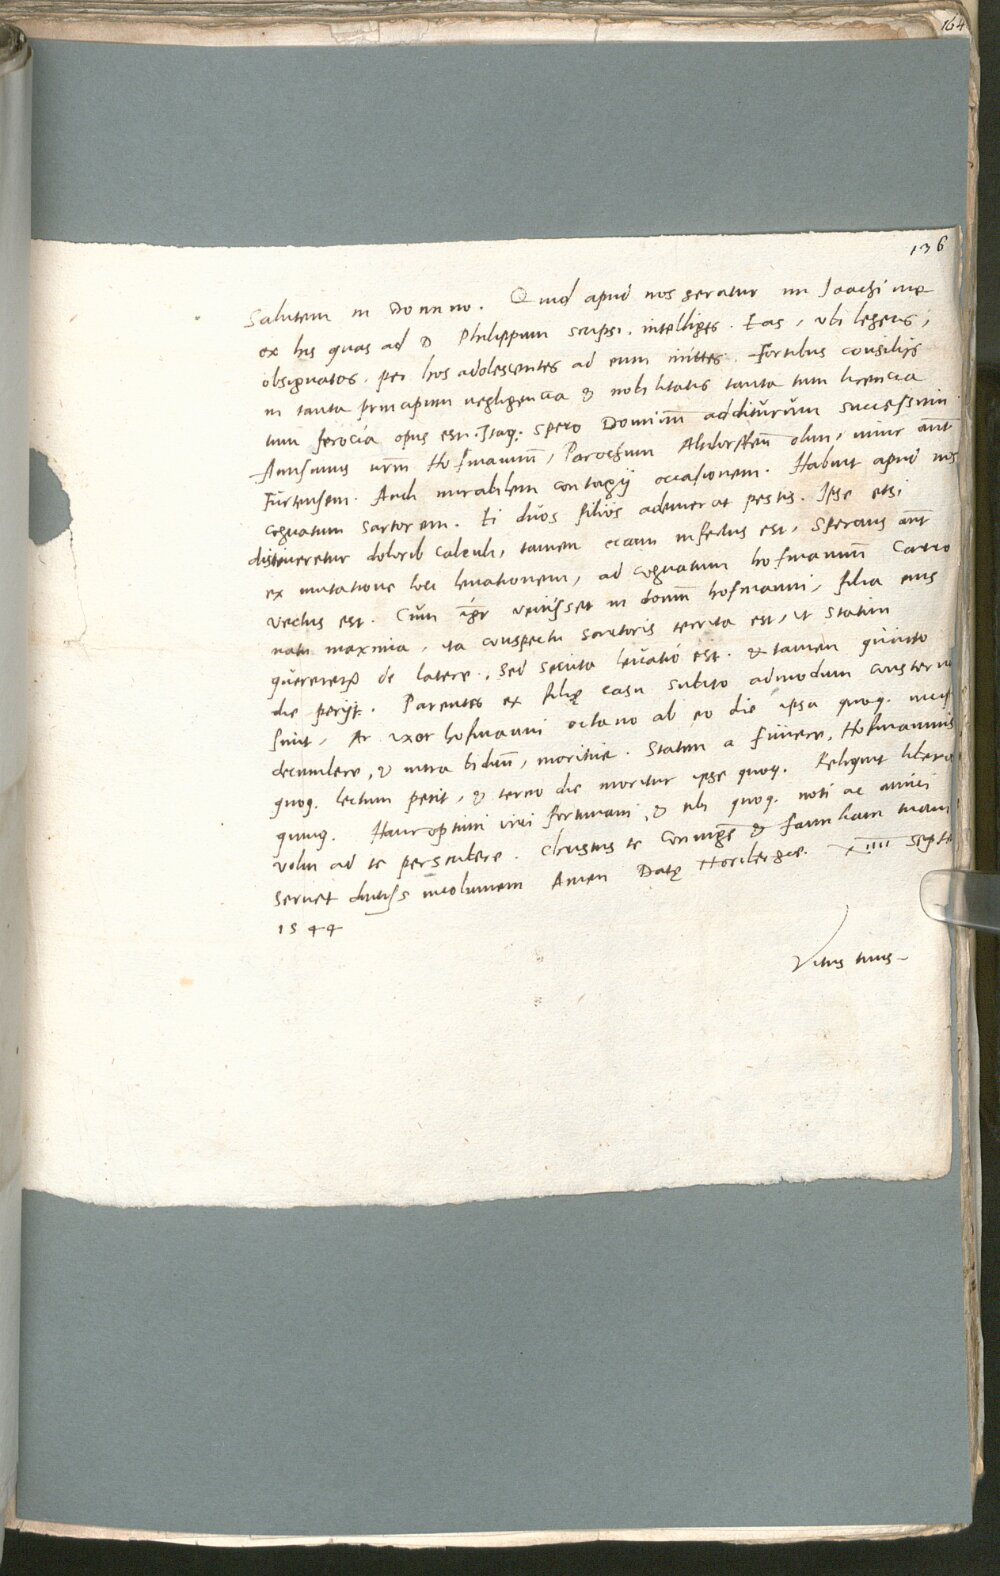 164
136
Salutem in Domino. Quid apud nos geratur mi Joachime
ex his quas ad D Philippum scripsi, intelliges. Eas, ubi legeris,
obsignatas, per hos adolescentes ad eum mittes. Fortibus consilijs
in tanta principum negligencia & nobilitatis tanta tum licencia
tum ferocia opus est. Itaq. spero Dominum additurum successum
Amisimus urm Hofmannum, Parochum olim, nunc aut
Furtensem. Audi mirabilem contagij occasionem. Habuit apud nos
cognatum Sartorem. Ei duos filios ademerat pestis. Ipse etsi
distineretur dolorib calculi, tamen eciam infectus est, Sperans aut
ex mutatione loci levationem, ad cognatum hofmannum Carro
vectus est. Cum igr venisset in domum hofmanni, filia eius
natu maxima, ita conspectu sartoris territa est, ut statim
quereretur de latere, sed secuta levatio est. & tamen quinto
die perijt. Parentes ex filię casu subito admodum conster
sunt, Ac uxor hofmanni octavo ab eo die ipsa quoq.
decumbere, & intra biduum, moritur. Statim a funere, Hofmannus
quoq. lectum petit, & tercio die moritur ipse quoq. Reliquit libero
quinq. Hanc optimi viri fortunam, & tibi quoq. noti ac amici
volui ad te perscribere. Christus te coniugem & familiam tuam
servet diutiss incolumem Amen Datę Noribergae. xiiii Septe
1544
Vitus tuus